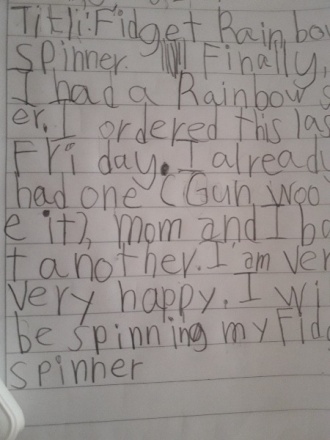 Titli: Fidget Rainbow
Spinner. Finally,
I had a Rainbow s
er. I ordered this las
Fri day. I already
had one (Gun woo
e it), mom and I bo
t another. I am ver
very happy. I wi
be spinning my Fid
spinner